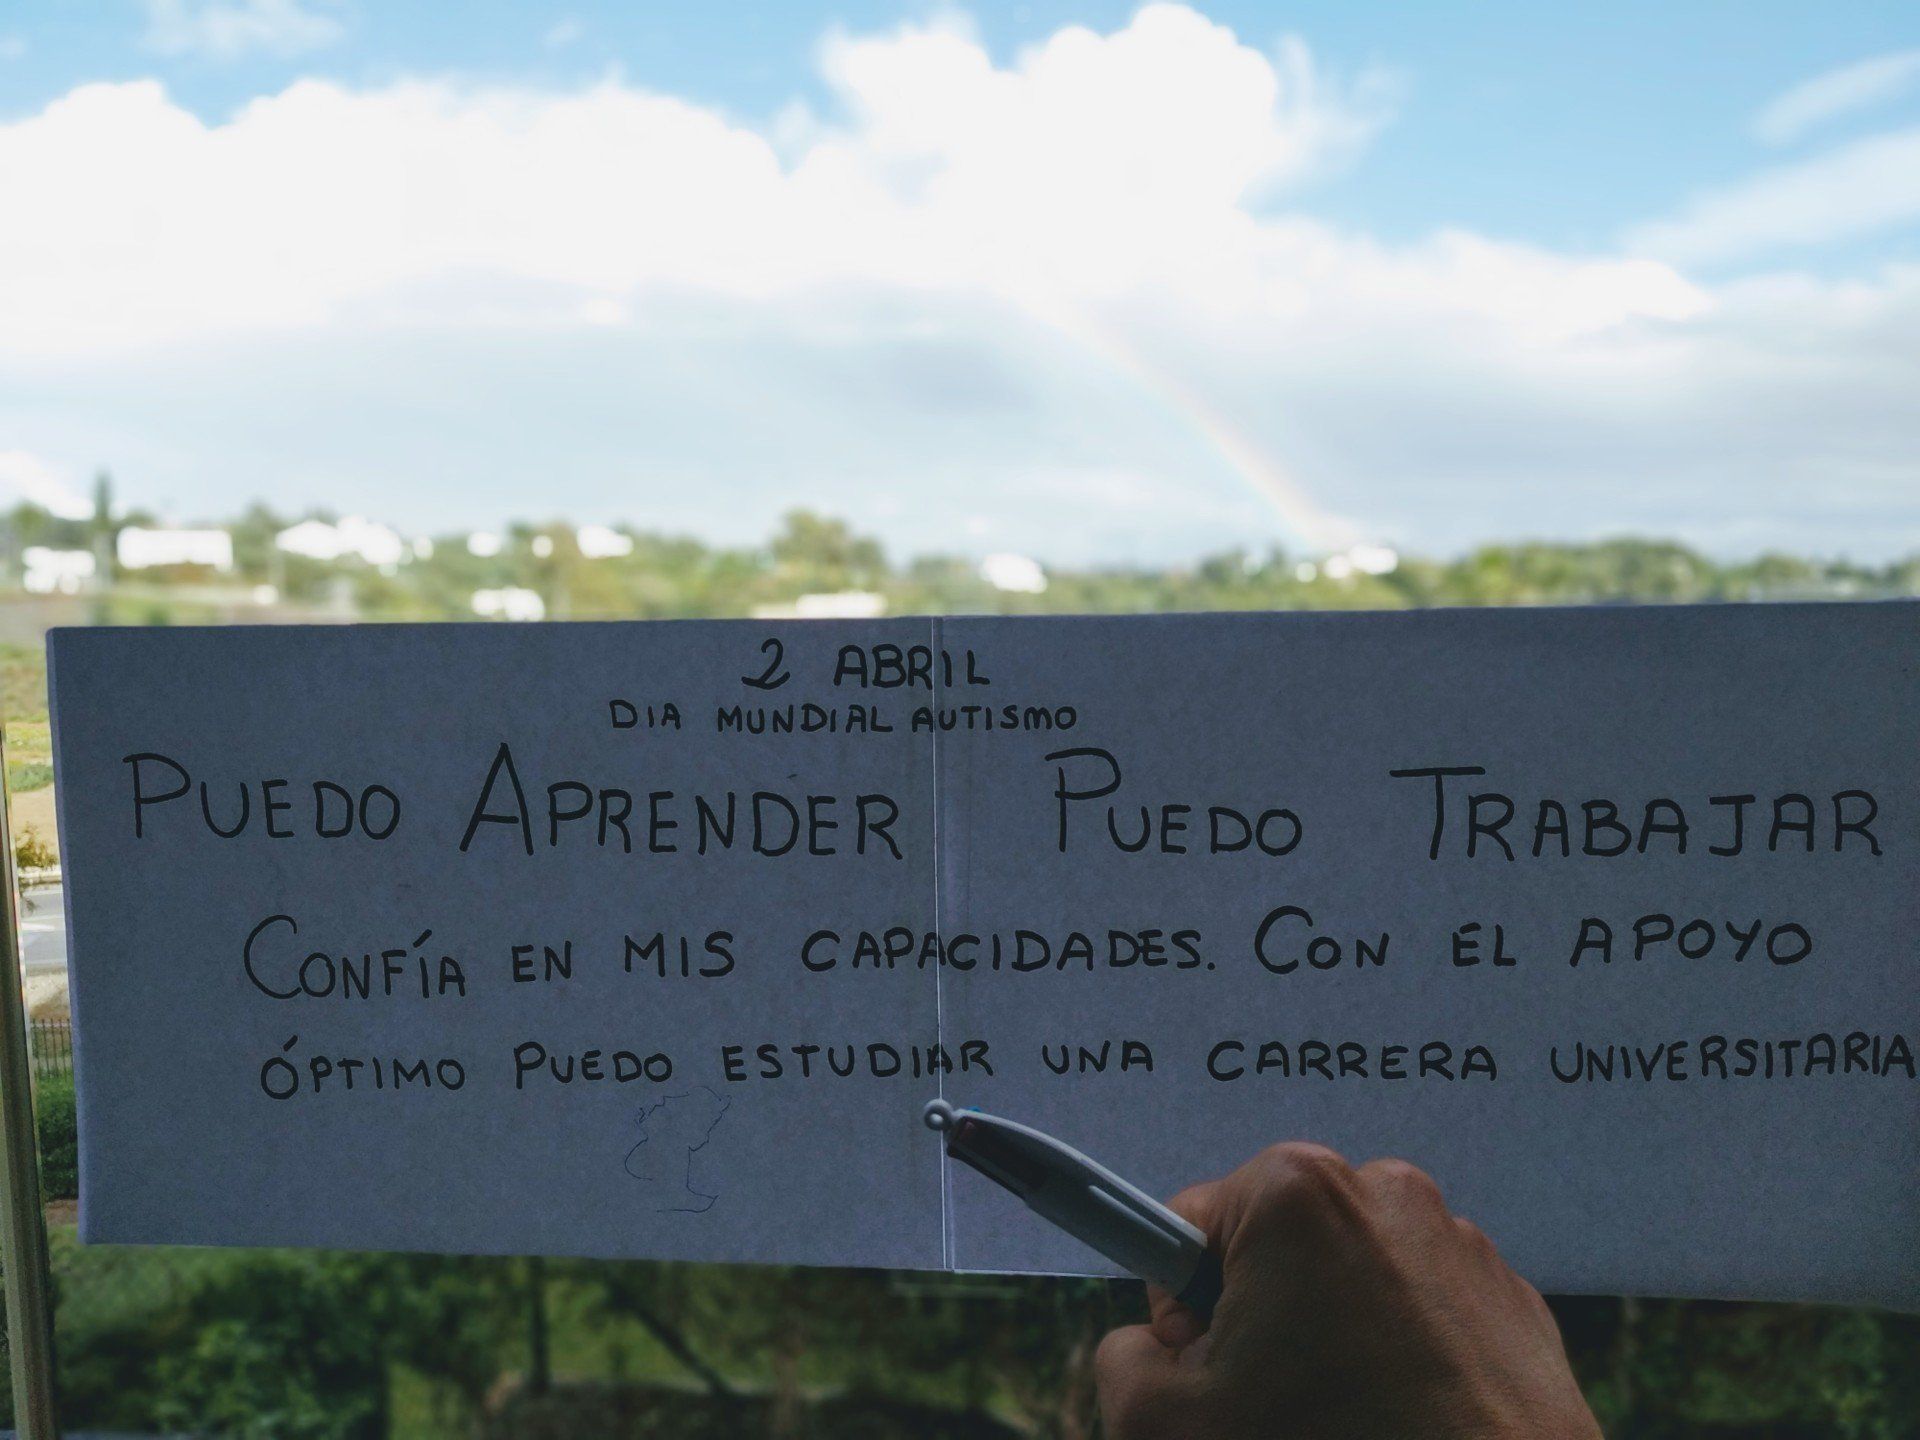 2 ABRIL
DIA MUNDIAL AUTISMO
PUEDO APRENDER PUEDO TRABAJAR
CONFÍA EN MIS CAPACIDADES. CON EL APOYO
ÓPTIMO PUEDO ESTUDIAR UNA CARRERA UNIVERSITARIA